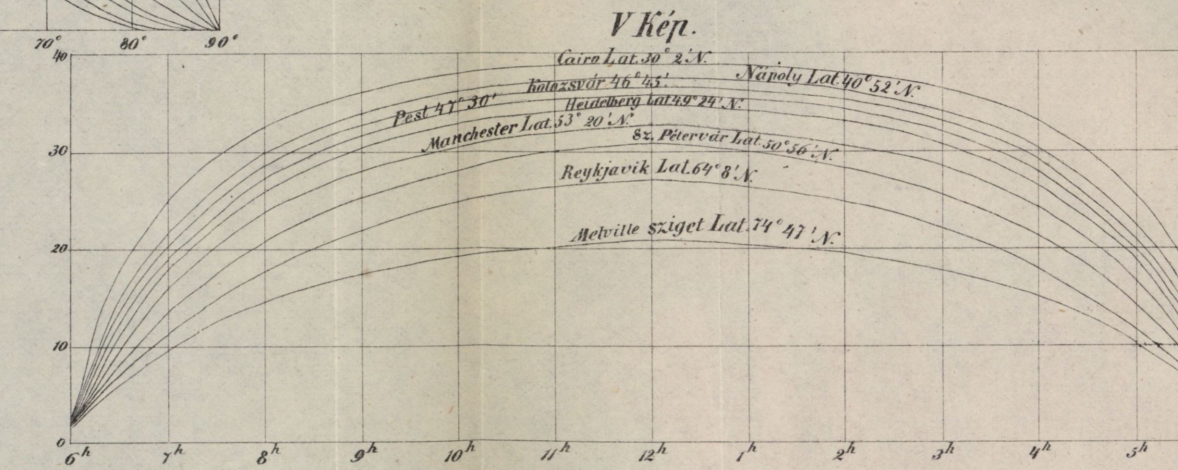 V Kép.
70° 80° 90°
40
Cairo Lat. 30° 2' N.
Nápoly Lat. 40° 52' N.
Kolozsvár 46° 45'
Pest 47° 30'
Heidelberg Lat 49° 24' N.
Manchester Lat. 53° 20' N.
Sz. Pétervár Lat. 50° 56' N.
30
Reykjavik Lat. 64° 8' N.
Melville sziget Lat. 74° 47' N.
20
10
0
6h 7h 8h 9h 10h 11h 12h 1h 2h 3h 4h 5h